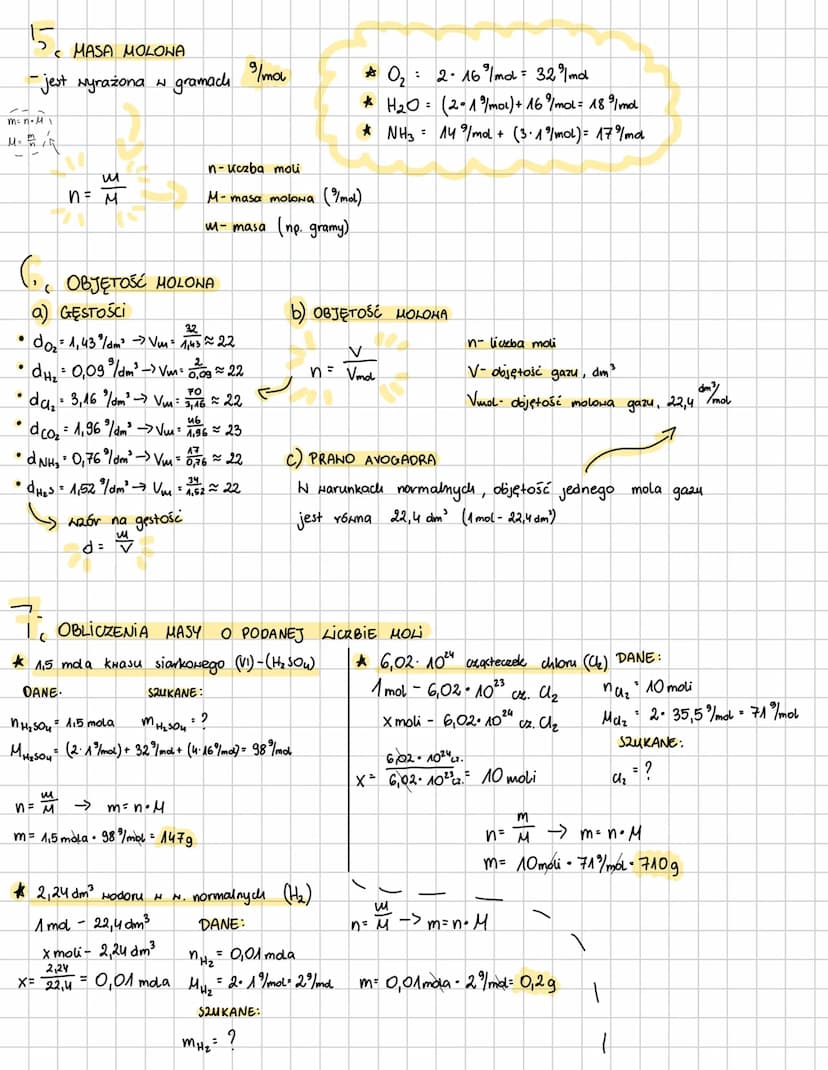 5. MASA MOLOWA
- jest wyrażona w gramach g/mol
m=n·M
M= m/n
n= m/M
n- liczba moli
M- masa molowa (g/mol)
m- masa (np. gramy)
★ O₂ : 2· 16 g/mol = 32 g/mol
★ H₂O = (2·1 g/mol)+ 16 g/mol = 18 g/mol
★ NH₃ = 14 g/mol + (3·1 g/mol)= 17 g/mol
6. OBJĘTOŚĆ MOLOWA
a) GĘSTOŚCI
• dO₂= 1,43 g/dm³ → Vm= 32/1,43 ≈ 22
• dH₂ = 0,09 g/dm³ → Vm= 2/0,09 ≈ 22
• dCl₂ = 3,16 g/dm³ → Vm= 70/3,16 ≈ 22
• dCO₂ = 1,96 g/dm³ → Vm= 46/1,96 ≈ 23
• dNH₃ = 0,76 g/dm³ → Vm= 17/0,76 ≈ 22
• dH₂S = 1,52 g/dm³ → Vm= 34/1,52 ≈ 22
wzór na gęstość
d = m/V
b) OBJĘTOŚĆ MOLOWA
n = V/Vmol
n- liczba moli
V- objętość gazu, dm³
Vmol- objętość molowa gazu, 22,4 dm³/mol
c) PRAWO AVOGADRA
W warunkach normalnych, objętość jednego mola gazu
jest równa 22,4 dm³ (1mol - 22,4 dm³)
7. OBLICZENIA MASY O PODANEJ LICZBIE MOLI
★ 1,5 mola kwasu siarkowego (VI)-(H₂SO₄)
DANE: SZUKANE:
nH₂SO₄= 1,5 mola mH₂SO₄= ?
MH₂SO₄= (2·1 g/mol)+ 32 g/mol+ (4·16 g/mol)= 98 g/mol
n= m/M → m= n·M
m= 1,5 mola · 98 g/mol = 147g
★ 6,02· 10²⁴ cząsteczek chloru (Cl₂) DANE:
1 mol - 6,02· 10²³ cz. Cl₂ nCl₂= 10 moli
x moli - 6,02· 10²⁴ cz. Cl₂ MCl₂= 2· 35,5 g/mol = 71 g/mol
SZUKANE:
x= 6,02· 10²⁴cz./6,02· 10²³cz. = 10 moli Cl₂ = ?
n= m/M → m= n·M
m= 10 moli · 71 g/mol = 710g
★ 2,24 dm³ wodoru w w. normalnych (H₂)
1 mol - 22,4 dm³ DANE:
x moli - 2,24 dm³ nH₂ = 0,01 mola
x= 2,24/22,4 = 0,01 mola MH₂ = 2· 1 g/mol= 2 g/mol
SZUKANE:
mH₂= ?
n= m/M → m= n·M
m= 0,01 mola · 2 g/mol= 0,2g